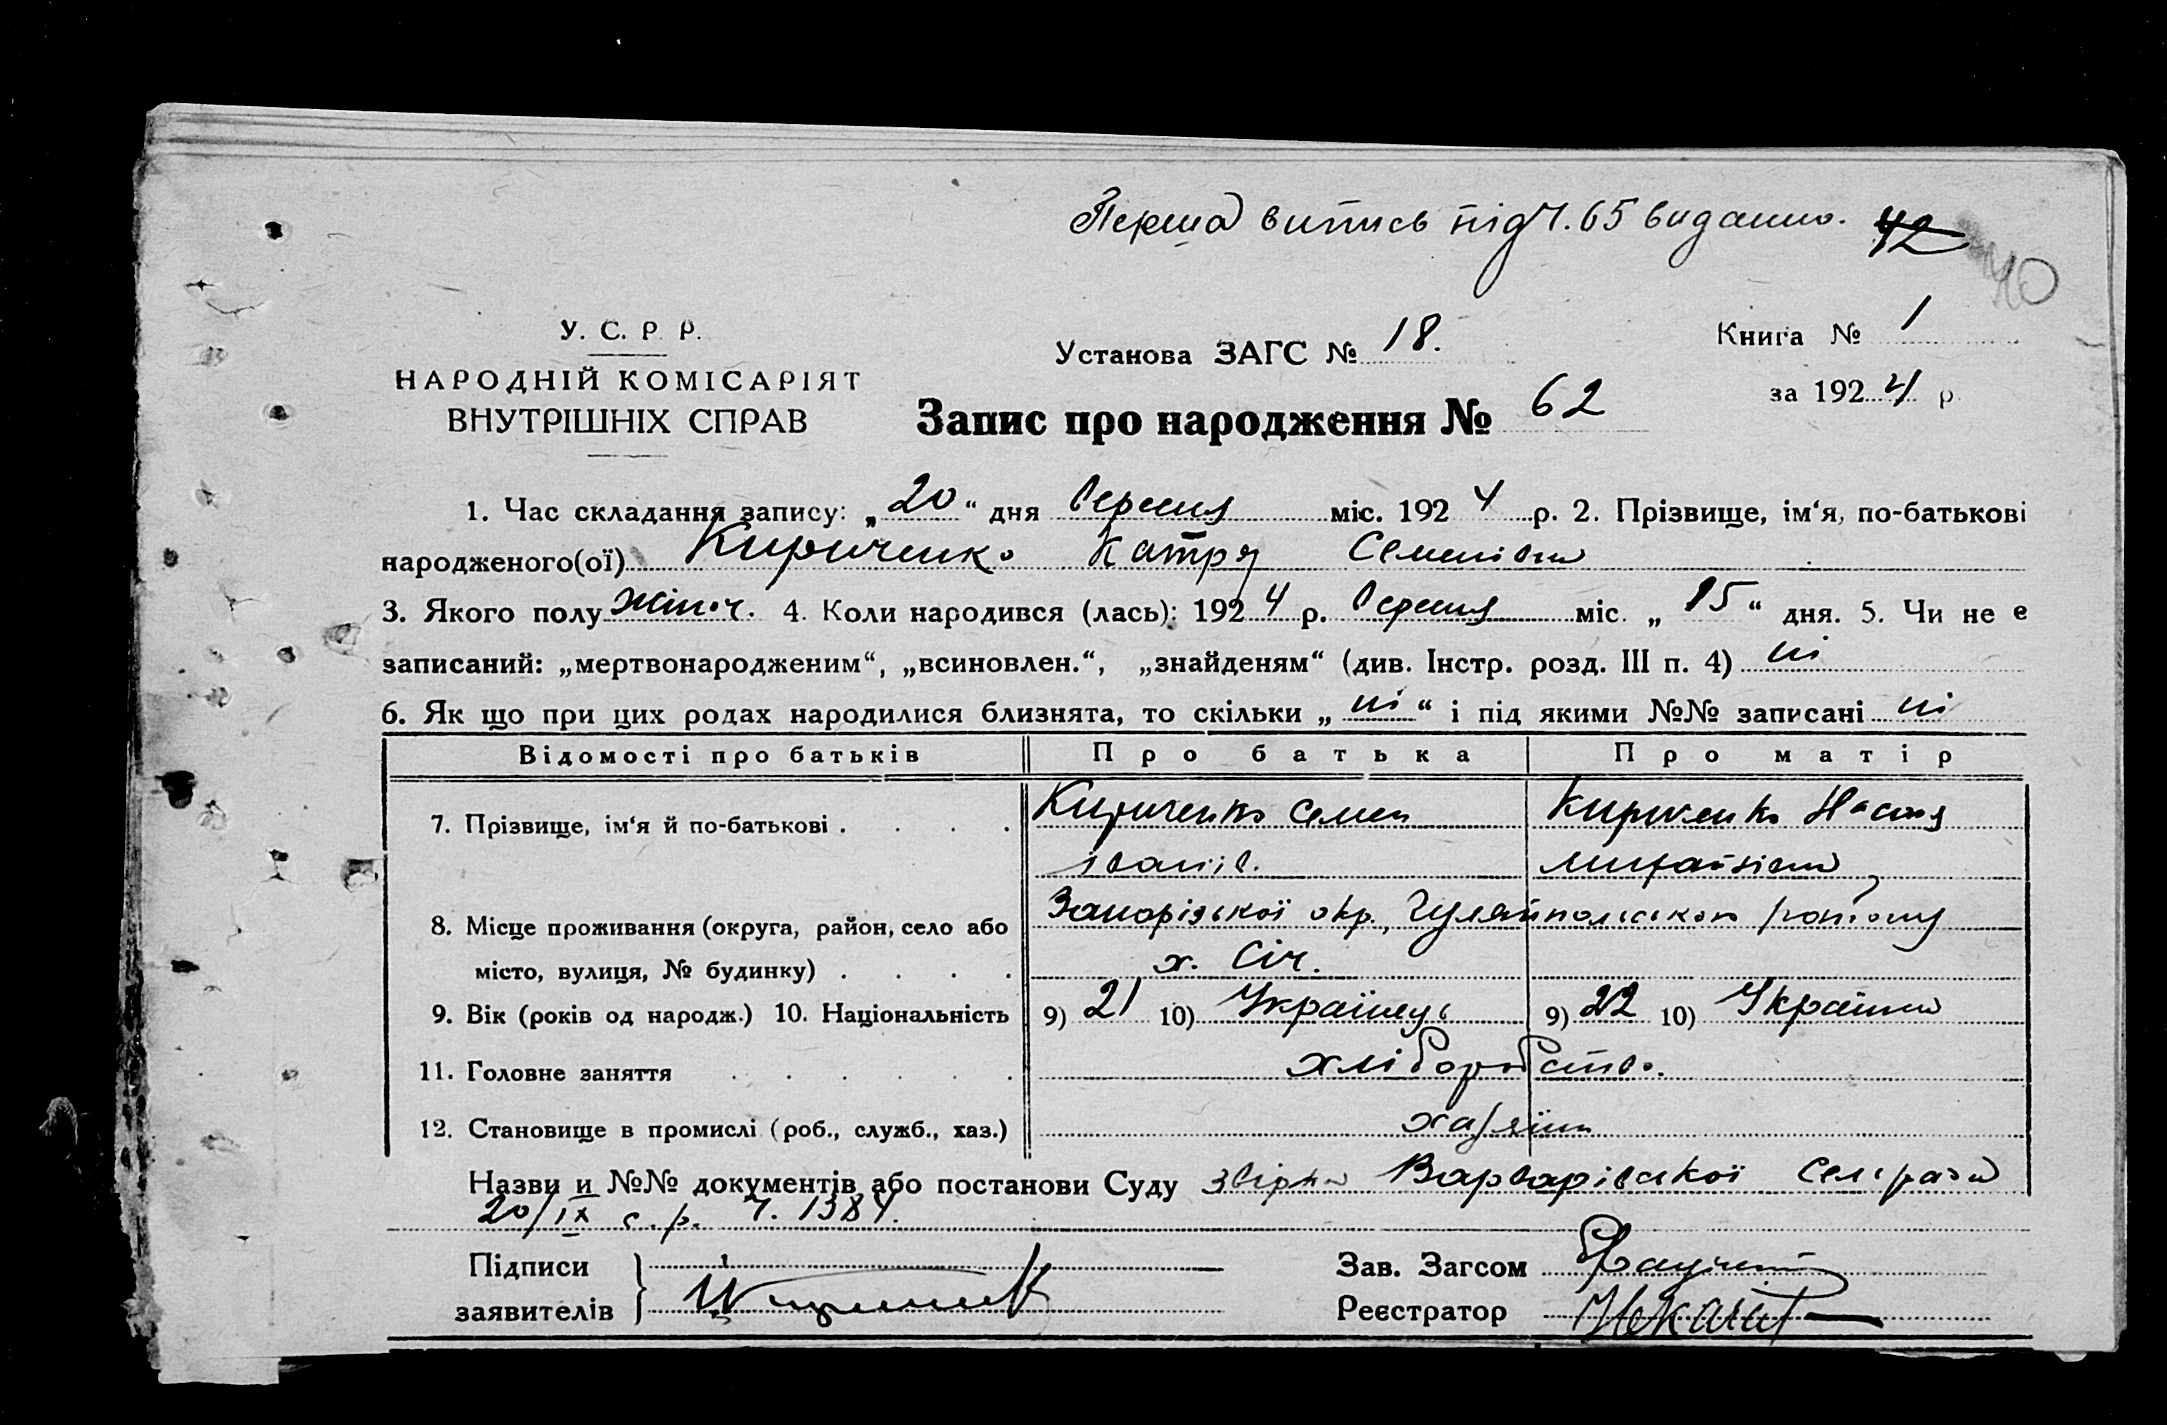 Перша випись під Ч. 65 видано. 42
40
У. С. Р. Р.
НАРОДНІЙ КОМІСАРІЯТ
ВНУТРІШНІХ СПРАВ
Установа ЗАГС № 18.
Книга № 1
за 1924 р.
Запис про народження № 62
1. Час складання запису: „20“ дня Вересня міс. 1924 р. 2. Прізвище, ім‘я, по-батькові
народженого(ої) Кириченко Катря Семенівна
3. Якого полу жіноч. 4. Коли народився (лась): 1924 р. Вересня міс. „15“ дня. 5. Чи не є
записаний: „мертвонародженим“, „всиновлен.“, „знайденям“ (див. Інстр. розд. III п. 4) ні
6. Як що при цих родах народилися близнята, то скільки „ні“ і під якими №№ записані ні
Відомості про батьків Про батька Про матір
7. Прізвище, ім‘я й по-батькові . . . . Кириченко Семен Кириченко Настя
іванів. михайлівна
8. Місце проживання (округа, район, село або Запорізької окр., Гуляйпольського району
місто, вулиця, № будинку) . . . . х. Січ.
9. Вік (років од народж.) 10. Національність 9) 21 10) Українець 9) 22 10) Українка
11. Головне заняття . . . . . . хліборобство.
12. Становище в промислі (роб., служб., хаз.) хазяїни
Назви и №№ документів або постанови Суду звірка Варварівської сельради
20/IX с. р. Ч. 1384.
Підписи
заявителів
Зав. Загсом
Реєстратор